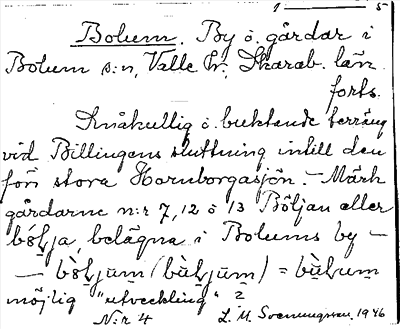 1 ——— 5
Bolum. By o. gårdar i
Bolum s:n, Valle hr, Skarab. län.
forts.
Småkullig o. buktande terräng
vid Billingens sluttning intill den
förr stora Hornborgasjön. – Märk
gårdarne n:r 7, 12 o 13 Böljan eller
bölja, belägna i Bolums by –
– bòljum (bùljum) = bùlum
möjlig "utveckling" ?
N:r 4 L. M. Svenungsson, 1946